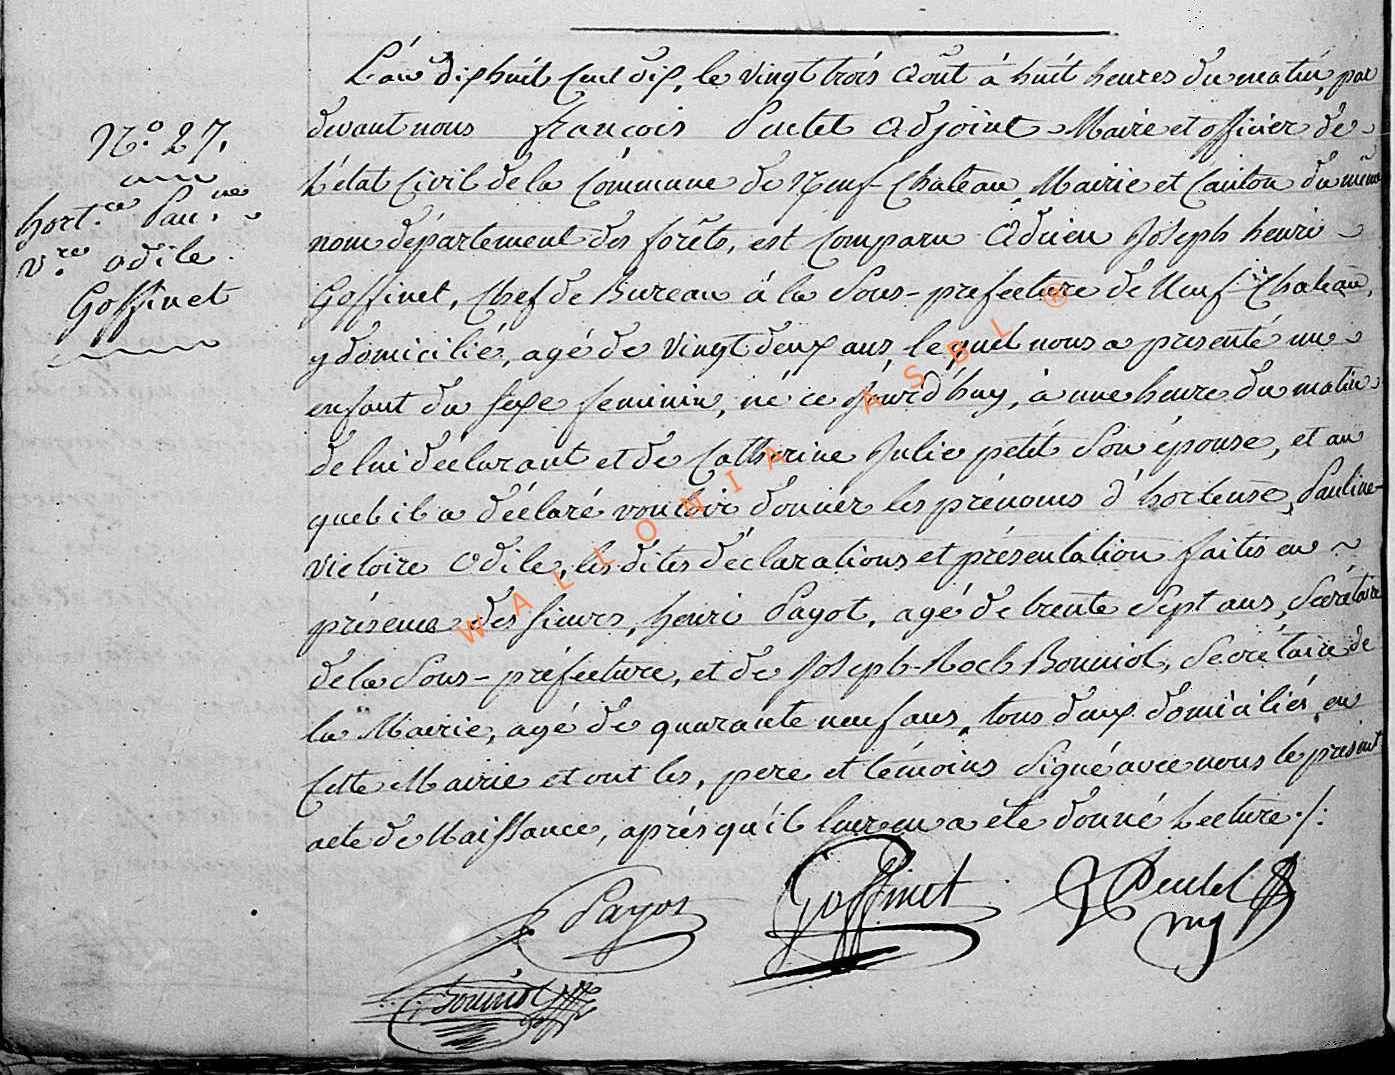 L'an dix huit cent dix, le vingt trois Août à huit heures du matin, par
N.º 27.
devant nous françois Adjoint Maire et officier de
l'état Civil de la Commune de Neuf-Chateau, Mairie et Canton du même
hort.ce Pau.ne
nom département des forêts, est Comparu Adrien Joseph henri
V.re Odile
Goffinet
Goffinet, Chef de Bureau à la Sous-prefecture de Neuf-Chateau,
y domicilié, agé de vingt deux ans, lequel nous a presenté un
enfant du sexe feminin, né ce jourd'huy, à une heure du matin
de lui déclarant et de Catherine Julie petit son épouse, et au
quel il a déclaré vouloir donner les prénoms d'hortense, Pauline
Victoire Odile, les dites déclarations et présentation faites en
présence des sieurs, henri Payot, agé de trente sept ans, Sécrétaire
de la Sous-préfecture, et de Joseph-Roch Bouniol, Secrétaire de
la Mairie, agé de quarante neuf ans, tous deux domiciliés en
Cette Mairie et ont les, pere et témoins Signé avec nous le present
acte de Naissance, après qu'il leur en a été donné Lecture ./:
Payot Goffinet
Bouniol
WALLONIA ASBL ®